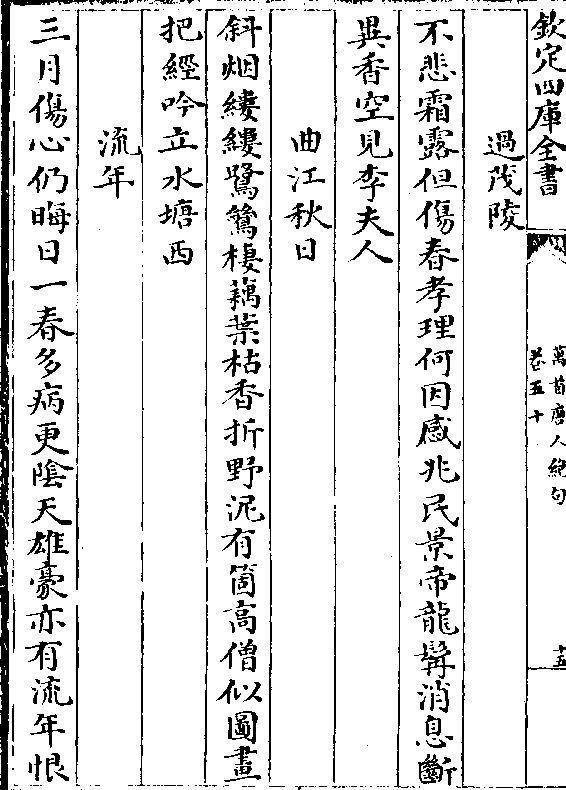 欽定四庫全書
萬首唐人絶句
卷五十
十五
過茂陵
不悲霜露但傷春孝理何因感兆民景帝龍髯消息斷
異香空見李夫人
曲江秋日
斜烟縷縷鷺鶿棲藕葉枯香折野泥有箇高僧似圖畫
把經吟立水塘西
流年
三月傷心仍晦日一春多病更陰天雄豪亦有流年恨